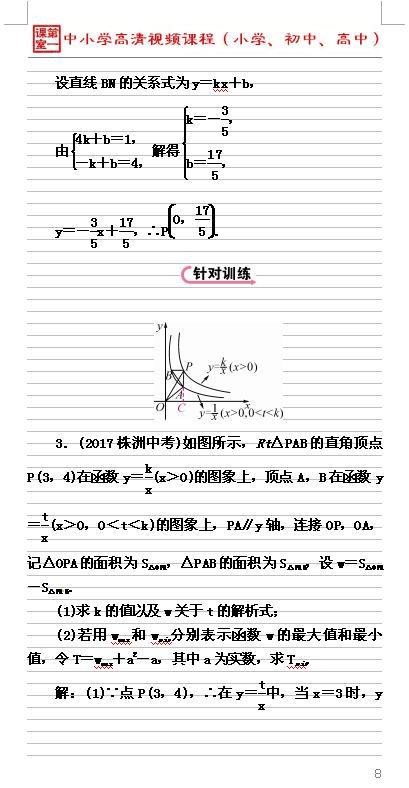 课第
室一 中小学高清视频课程（小学、初中、高中）
设直线BN的关系式为y＝kx＋b，
由{4k＋b＝1，－k＋b＝4，解得{k＝－3/5，b＝17/5，
y＝－3/5x＋17/5，∴P(0，17/5).
针对训练
y
B P y=k/x(x>0)
A
O C x
y=1/x(x>0,0<t<k)
3．(2017株洲中考)如图所示，Rt△PAB的直角顶点
P(3，4)在函数y＝k/x(x>0)的图象上，顶点A，B在函数y
＝t/x(x>0，0＜t＜k)的图象上，PA∥y轴，连接OP，OA，
记△OPA的面积为S△OPA，△PAB的面积为S△PAB，设w＝S△OPA
－S△PAB.
(1)求k的值以及w关于t的解析式；
(2)若用wmax和wmin分别表示函数w的最大值和最小
值，令T＝wmax＋a²－a，其中a为实数，求Tmin.
解：(1)∵点P(3，4)，∴在y＝t/x中，当x＝3时，y
8